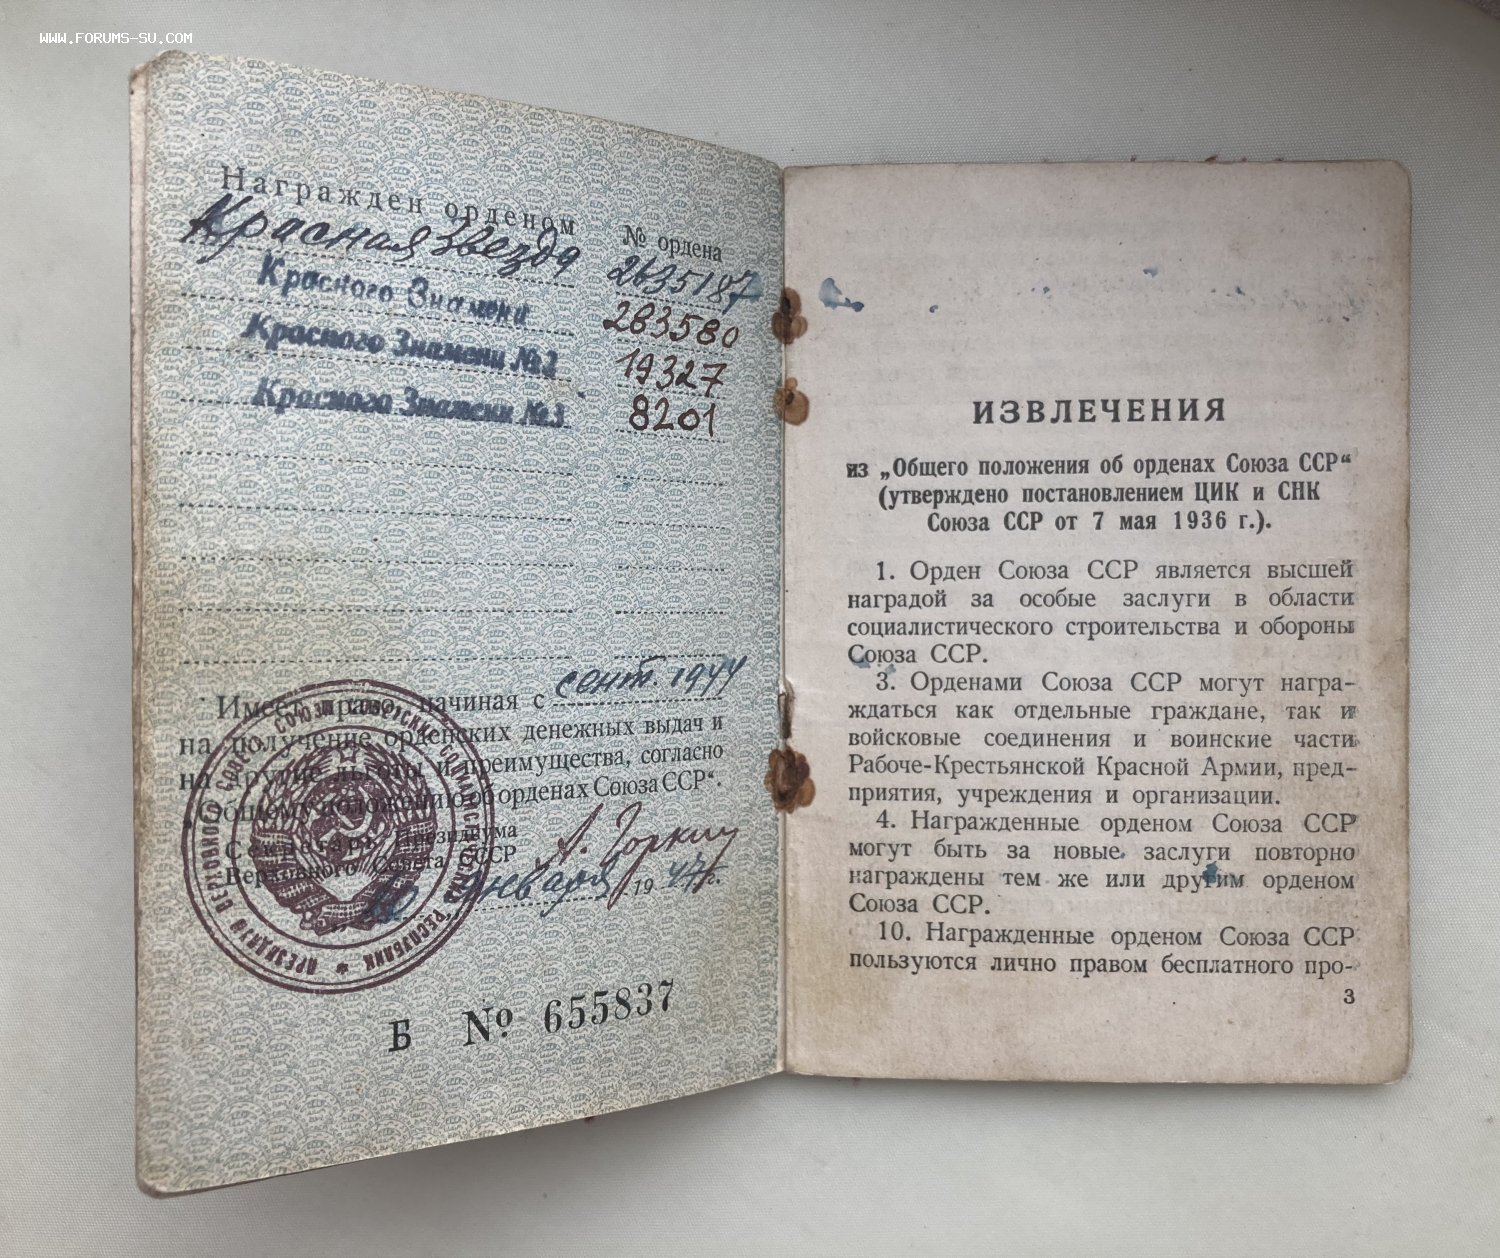 WWW.FORUMS-SU.COM
Награжден орденом
№ ордена
Красная Звезда 2635187
Красного Знамени 283580
Красного Знамени №2 19327
Красного Знамени №3 8201
Имеет право, начиная с сент. 1944
на получение орденских денежных выдач и
на другие льготы и преимущества, согласно
„Общему положению об орденах Союза ССР“.
Секретарь Президиума
Верховного Совета СССР А. Горкин
января 1947 г.
ПРЕЗИДИУМ ВЕРХОВНОГО СОВЕТА СОЮЗА СОВЕТСКИХ СОЦИАЛИСТИЧЕСКИХ РЕСПУБЛИК
Б № 655837
ИЗВЛЕЧЕНИЯ
из „Общего положения об орденах Союза ССР“
(утверждено постановлением ЦИК и СНК
Союза ССР от 7 мая 1936 г.).
1. Орден Союза ССР является высшей
наградой за особые заслуги в области
социалистического строительства и обороны
Союза ССР.
3. Орденами Союза ССР могут награ-
ждаться как отдельные граждане, так и
войсковые соединения и воинские части
Рабоче-Крестьянской Красной Армии, пред-
приятия, учреждения и организации.
4. Награжденные орденом Союза ССР
могут быть за новые заслуги повторно
награждены тем же или другим орденом
Союза ССР.
10. Награжденные орденом Союза ССР
пользуются лично правом бесплатного про-
3